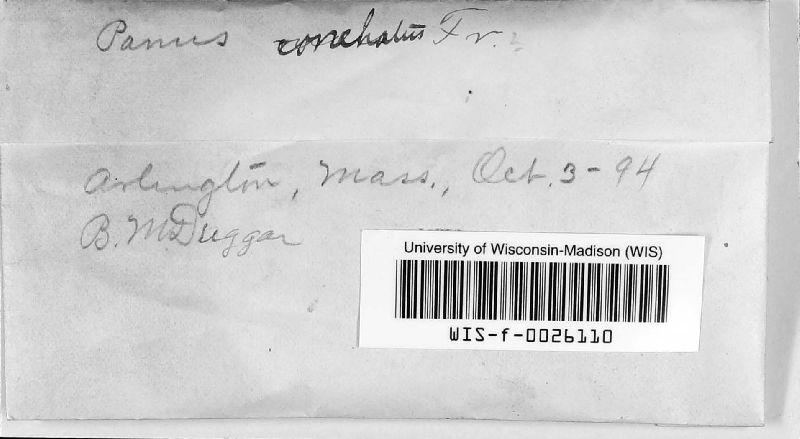 Panus conchatus Fr.?
Arlington, Mass., Oct. 3-94
B. M Duggar
University of Wisconsin-Madison (WIS)
WIS-f-0026110